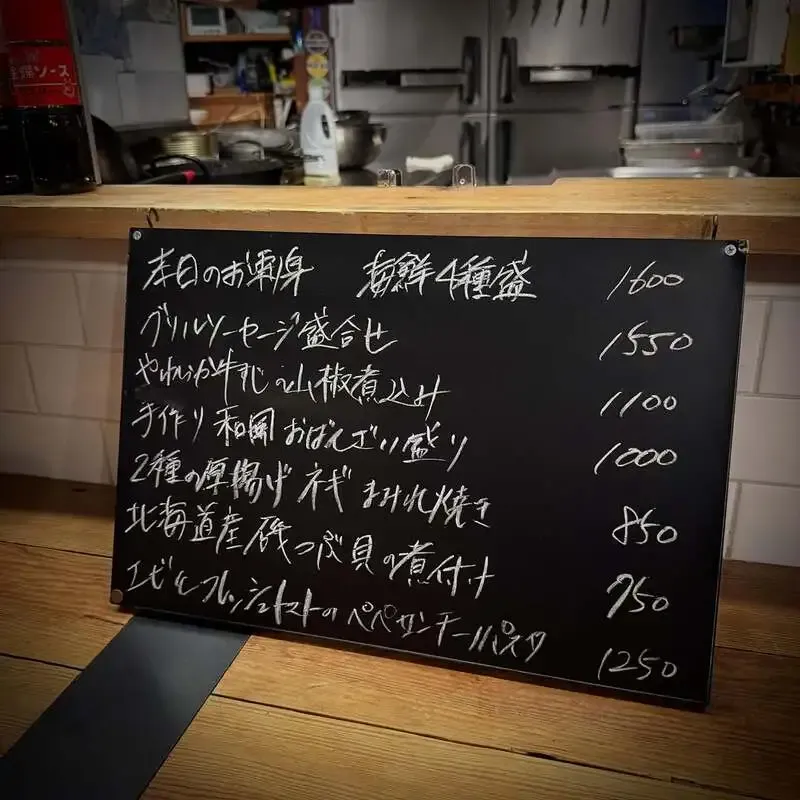 ソース
本日のお刺身 海鮮4種盛 1600
グリルソーセージ盛合せ 1550
やわらか牛すじの山椒煮込み 1100
手作り和風おばんざい盛り 1000
2種の厚揚げ ネギまみれ焼き 850
北海道産磯つぶ貝の煮付け 750
エビとフレッシュトマトのペペサンチーノパスタ 1250